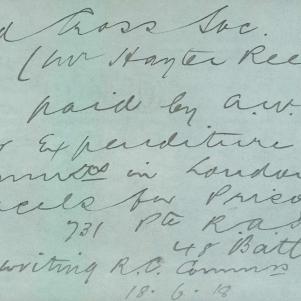 d Cross Soc.
(Mr Hayter Ree
paid by A.W.
Expenditure
in London
cels for Priso
731 Pte R.A.S
48 Batt
writing R.C. Commrs
18.6.18